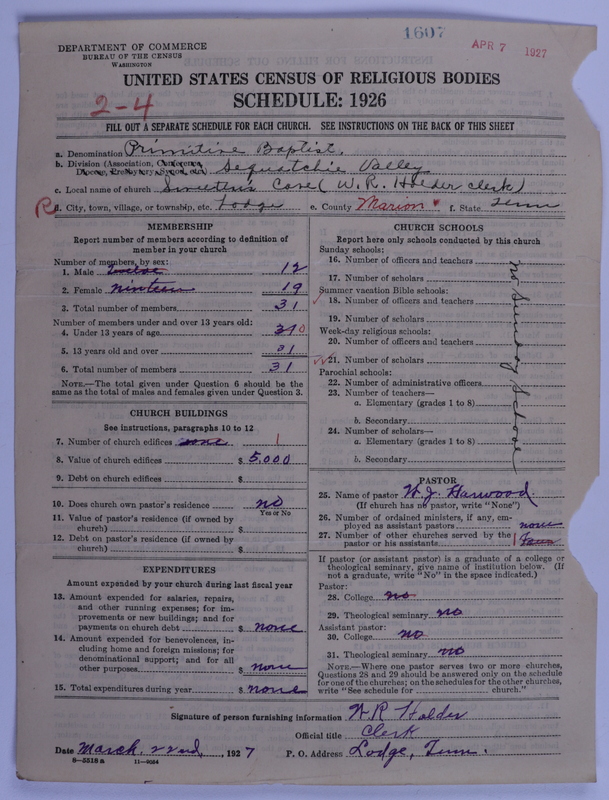 1607
APR 7 1927
DEPARTMENT OF COMMERCE
BUREAU OF THE CENSUS
WASHINGTON
UNITED STATES CENSUS OF RELIGIOUS BODIES
SCHEDULE: 1926
2-4
FILL OUT A SEPARATE SCHEDULE FOR EACH CHURCH. SEE INSTRUCTIONS ON THE BACK OF THIS SHEET
a. Denomination Primitive Baptist.
b. Division (Association, Conference, Diocese, Presbytery, Synod, etc.) Sequatchie Valley
c. Local name of church Sweetens Cove (W. R. Holder clerk)
R d. City, town, village, or township, etc. Lodge e. County Marion f. State Tenn
MEMBERSHIP
Report number of members according to definition of member in your church
Number of members, by sex:
1. Male twelve 12
2. Female nineteen 19
3. Total number of members 31
Number of members under and over 13 years old:
4. Under 13 years of age 0
5. 13 years old and over 31
6. Total number of members 31
NOTE.—The total given under Question 6 should be the same as the total of males and females given under Question 3.
CHURCH BUILDINGS
See instructions, paragraphs 10 to 12
7. Number of church edifices none 1
8. Value of church edifices $ 5,000
9. Debt on church edifices $
10. Does church own pastor's residence no
Yes or No
11. Value of pastor's residence (if owned by church) $
12. Debt on pastor's residence (if owned by church) $
EXPENDITURES
Amount expended by your church during last fiscal year
13. Amount expended for salaries, repairs, and other running expenses; for improvements or new buildings; and for payments on church debt $ none
14. Amount expended for benevolences, including home and foreign missions; for denominational support; and for all other purposes $ none
15. Total expenditures during year $ none
CHURCH SCHOOLS
Report here only schools conducted by this church
Sunday schools:
16. Number of officers and teachers
17. Number of scholars
Summer vacation Bible schools:
18. Number of officers and teachers
19. Number of scholars
Week-day religious schools:
20. Number of officers and teachers
21. Number of scholars
Parochial schools:
22. Number of administrative officers
23. Number of teachers—
a. Elementary (grades 1 to 8)
b. Secondary
24. Number of scholars—
a. Elementary (grades 1 to 8)
b. Secondary
no Sunday School
PASTOR
25. Name of pastor W. J. Harwood.
(If church has no pastor, write "None")
26. Number of ordained ministers, if any, employed as assistant pastors none
27. Number of other churches served by the pastor or his assistants
If pastor (or assistant pastor) is a graduate of a college or theological seminary, give name of institution below. (If not a graduate, write "No" in the space indicated.)
Pastor:
28. College no
29. Theological seminary no
Assistant pastor:
30. College no
31. Theological seminary no
NOTE.—Where one pastor serves two or more churches, Questions 28 and 29 should be answered only on the schedule for one of the churches; on the schedules for the other churches, write "See schedule for church."
Signature of person furnishing information W R Holder
Official title Clerk
Date March 22nd, 1927 P. O. Address Lodge, Tenn.
8—5518 a 11—9064